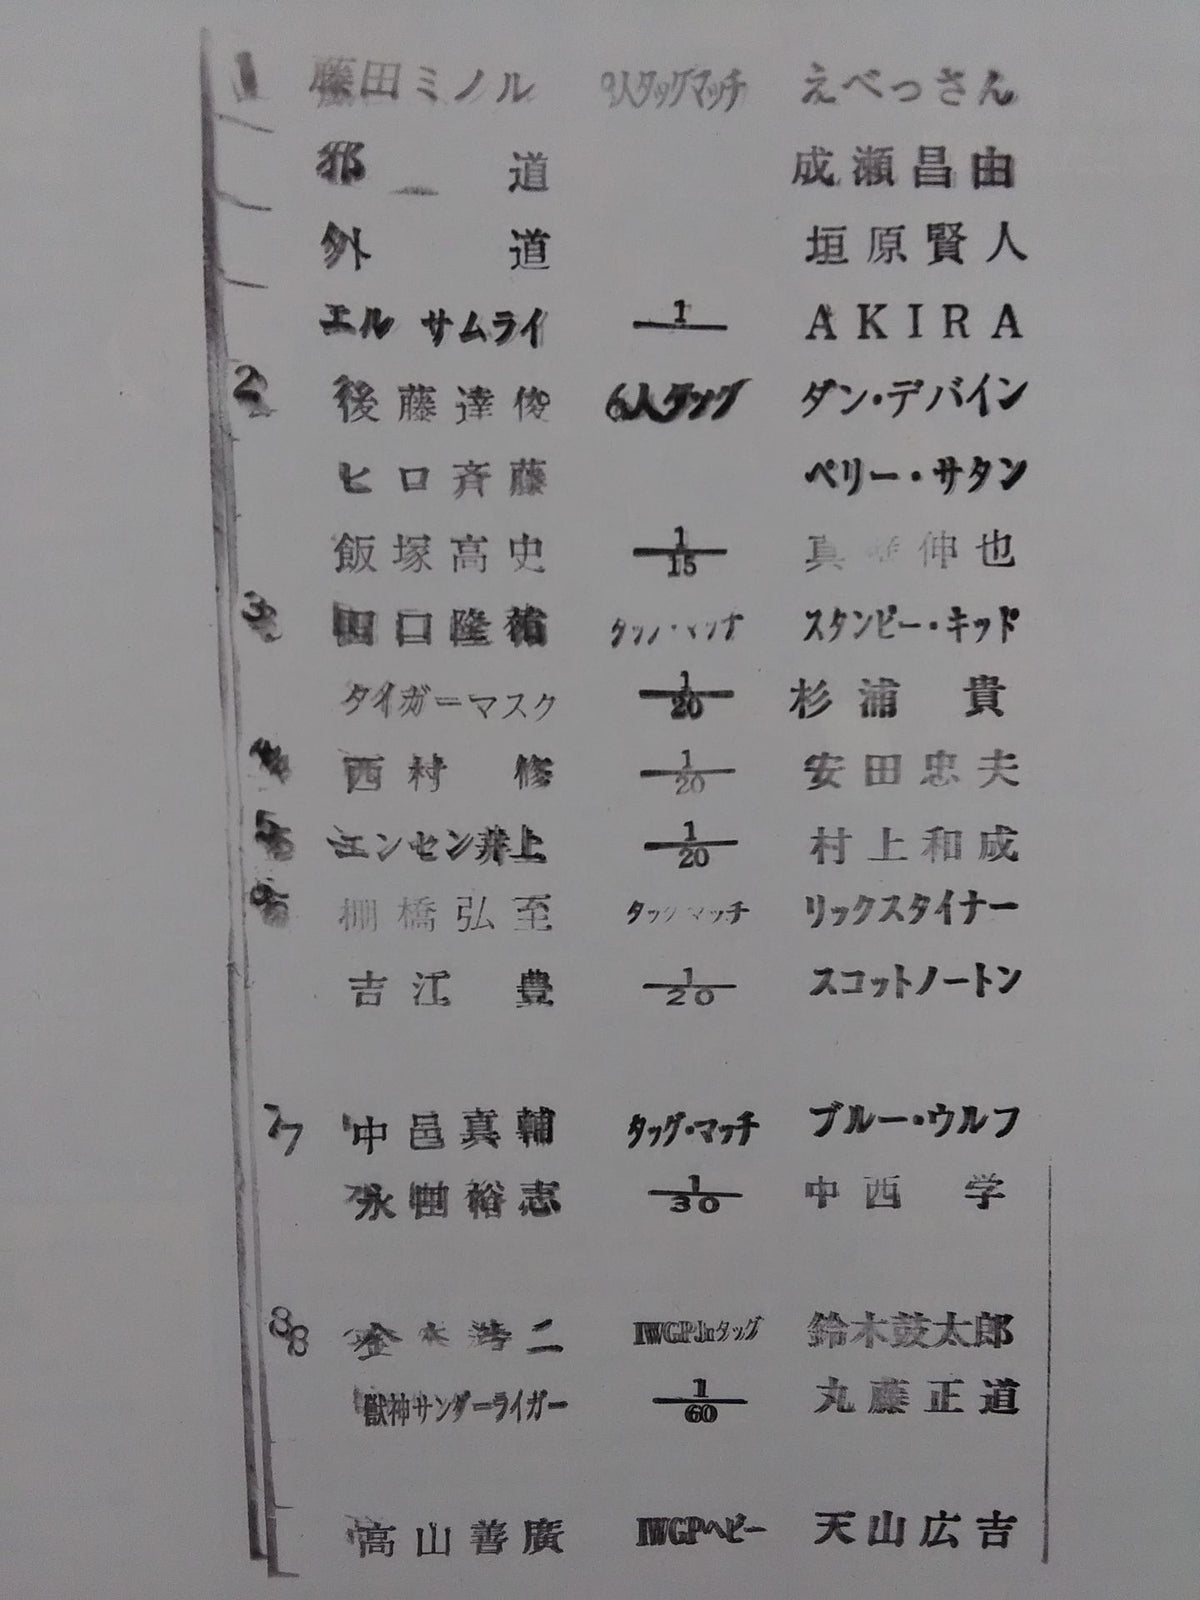 1 藤田ミノル 8人タッグマッチ えべっさん
邪道 成瀬昌由
外道 垣原賢人
エル サムライ 1 AKIRA
2 後藤達俊 6人タッグ ダン・デバイン
ヒロ斉藤 ペリー・サタン
飯塚高史 1/15 真 伸也
3 田口隆祐 タッグ・マッチ スタンピー・キッド
タイガーマスク 1/20 杉浦 貴
4 西村 修 1/20 安田忠夫
5 エンセン井上 1/20 村上和成
6 棚橋弘至 タッグマッチ リックスタイナー
吉江 豊 1/20 スコットノートン
7 中邑真輔 タッグ・マッチ ブルー・ウルフ
永田裕志 1/30 中西 学
8 金本浩二 IWGPJrタッグ 鈴木鼓太郎
獣神サンダーライガー 1/60 丸藤正道
高山善廣 IWGPヘビー 天山広吉